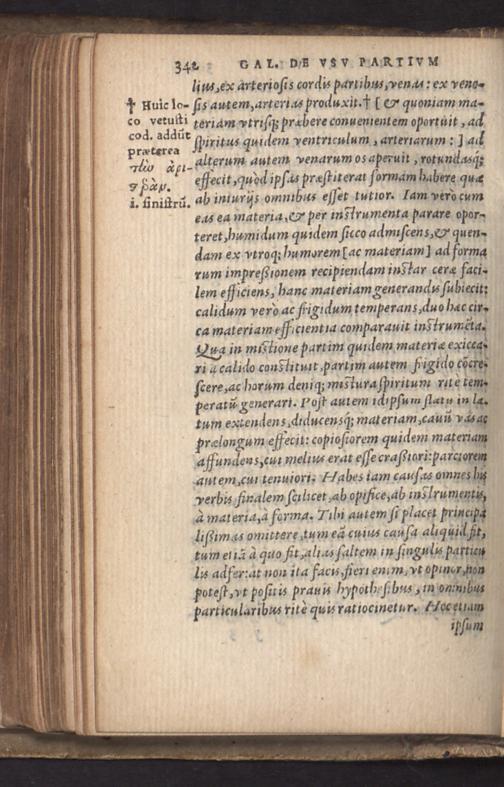 342 GAL. DE VSV PARTIVM
lius, ex arteriosis cordis partibus, venas: ex veno-
sis autem, arterias produxit.† [& quoniam ma-
teriam vtrisq; præbere conuenientem oportuit, ad
spiritus quidem ventriculum, arteriarum:] ad
alterum autem venarum os aperuit, rotundasq;
effecit, quòd ipsas præstiterat formam habere quæ
ab iniurijs omnibus esset tutior. Iam verò cum
eas ea materia, & per instrumenta parare opor-
teret, humidum quidem sicco admiscens, & quen-
dam ex vtroq; humorem [ac materiam] ad forma
rum impreßionem recipiendam instar ceræ faci-
lem efficiens, hanc materiam generandis subiecit:
calidum verò ac frigidum temperans, duo hæc cir-
ca materiam efficientia comparauit instrumēta.
Qua in mistione partim quidem materiæ exicca-
ri a calido constituit, partim autem frigido cōcre-
scere, ac horum deniq; mistura spiritum rite tem-
peratū generari. Post autem id ipsum flatu in la-
tum extendens, diducensq; materiam, cauū vas ac
prælongum effecit: copiosiorem quidem materiam
affundens, cui melius erat esse craßiori: parciorem
autem, cui tenuiori. Habes iam causas omnes his
verbis finalem scilicet, ab opifice, ab instrumentis,
à materia, à forma. Tibi autem si placet principa
lißimas omittere, tum eā cuius causa aliquid fit,
tum etiā à quo fit, alias saltem in singulis particu
lis adfer: at non ita facis, fieri enim, vt opinor, non
potest, vt positis prauis hypothesibus, in omnibus
particularibus ritè quis ratiocinetur. Hoc etiam
ipsum
† Huic lo-
co vetusti
cod. addūt
præterea
τὴν ἀρι-
ςεράν.
i. sinistrū.